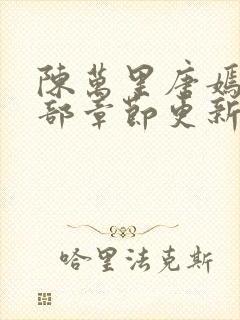 陳萬里唐嫣
部章節更新
哈里法克斯